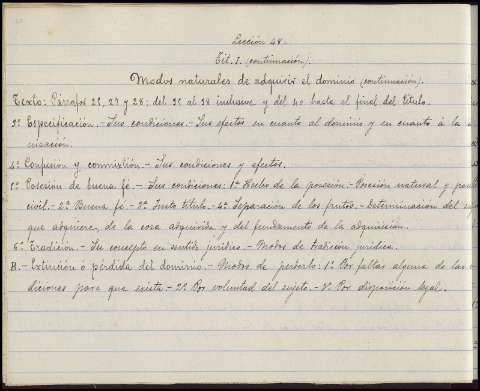 Lección 48.
Tít. I. (continuación).
Modos naturales de adquirir el dominio (continuación).
Texto: Párrafos 25, 27 y 28; del 35 al 38 inclusive y del 40 hasta el final del título.
3º Especificación. - Sus condiciones. - Sus efectos en cuanto al dominio y en cuanto á la
4º Confusión y conmixtión. - Sus condiciones y efectos.
5º Posesión de buena fe. - Sus condiciones: 1ª Hecho de la posesión. - Posesión natural y
civil. - 2ª Buena fe. - 3ª Justo título. - 4ª Separación de los frutos. - Determinación del
que adquiere, de la cosa adquirida y del fundamento de la adquisición.
6º Tradición. - Su concepto en sentido jurídico. - Modos de tradición jurídica.
B. - Extinción ó pérdida del dominio. - Modos de perderlo: 1º Por faltar alguna de las
diciones para que exista. - 2º Por voluntad del sujeto. - 3º Por disposición legal.